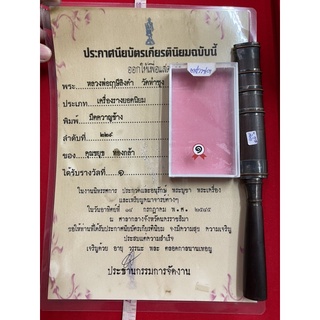 ประกาศนียบัตรเกียรตินิยมฉบับนี้
ออกให้เพื่อแสดง
พระ หลวงพ่อฤาษีลิงดำ วัดท่าซุง
ประเภท เครื่องรางยอดนิยม
พิมพ์ มีดควาญช้าง
ลำดับที่ ๒๒๙
ของ
ได้รับรางวัลที่ ๑
๑
ในงานนิทรรศการ ประกวดและอนุรักษ์ พระบูชา พระเครื่อง
และเหรียญคณาจารย์ต่างๆ
ในวันอาทิตย์ที่ กรกฎาคม พ.ศ. ๒๕๔๔
ณ ศาลากลางจังหวัดนครราชสีมา
ขอให้ท่านที่ได้รับประกาศนียบัตรเกียรตินิยม จงมีความสุข ความเจริญ
ประสบแต่ความสำเร็จ
เจริญด้วย อายุ วรรณะ พละ ตลอดกาลนานเทอญ
ประธานกรรมการจัดงาน